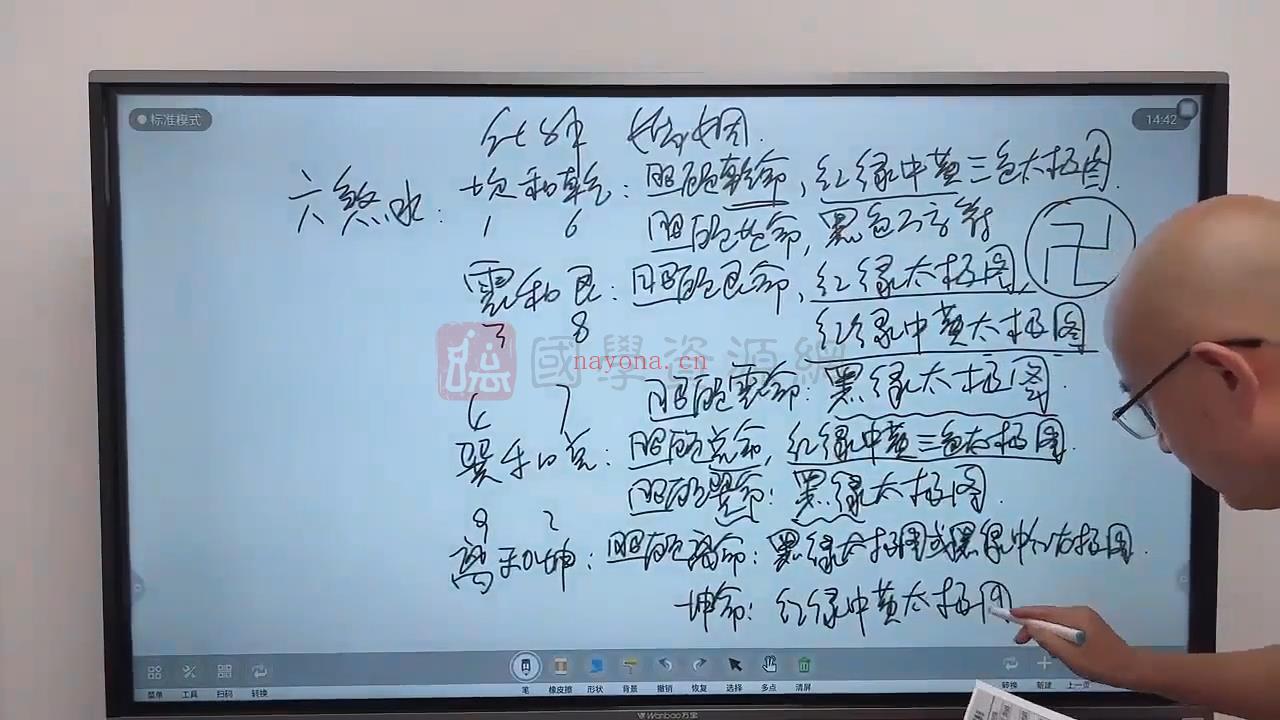 标准模式
14:42
化解 婚姻.
六煞水: 坎和乾: 阳的乾命, 红绿中黄三色太极图.
1 6 阳的坎命, 黑色万字符 卍
震和艮: 阳的艮命, 红绿太极图,
3 8 红绿中黄太极图
阳的震命: 黑绿太极图.
4 7
巽和兑: 阳的兑命, 红绿中黄三色太极图.
阳的巽命: 黑绿太极图.
9 2
离和坤: 阳的离命: 黑绿太极图或黑绿中红太极图.
坤命: 红绿中黄太极图
國學資源網
nayona.cn
菜单 工具 扫码 转换 笔 橡皮擦 形状 背景 撤销 恢复 选择 多点 清屏 转换 新建 上一页
Wanboo万宝